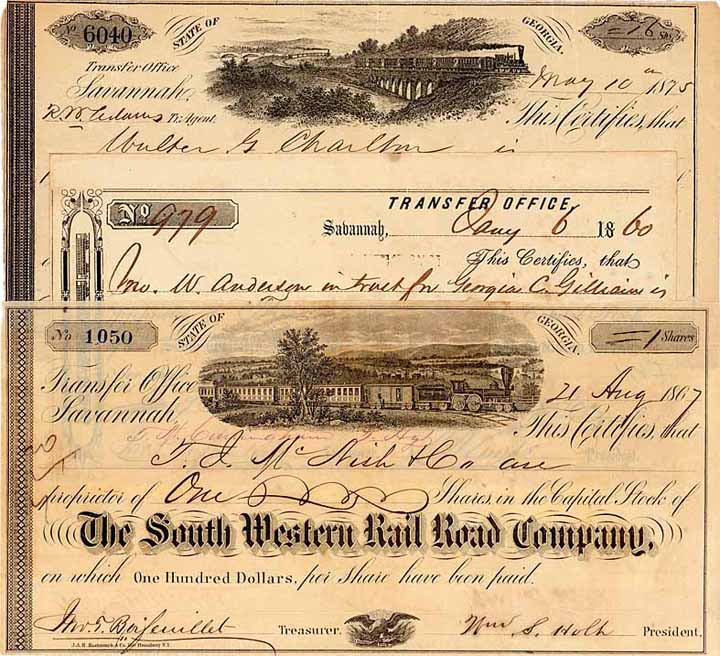 No 6040
STATE OF GEORGIA.
=16 Sha
Transfer Office
Savannah,
May 10th 1875
R. W. Adams Tr. Agent.
This Certifies, that
Walter G Charlton is
TRANSFER OFFICE,
No 979
Savannah, Jany 6 1860
This Certifies, that
Jno. W. Anderson in trust for Georgia C. Gilliam is
No 1050
STATE OF GEORGIA.
=1 Shares
Transfer Office
Savannah
21 Aug 1867
This Certifies, that
T. J. McNish & Co are
proprietor of One Shares, in the Capital Stock of
The South Western Rail Road Company,
on which One Hundred Dollars, per Share have been paid.
Jno. T. Boifeuillet Treasurer. Wm S. Holt President.